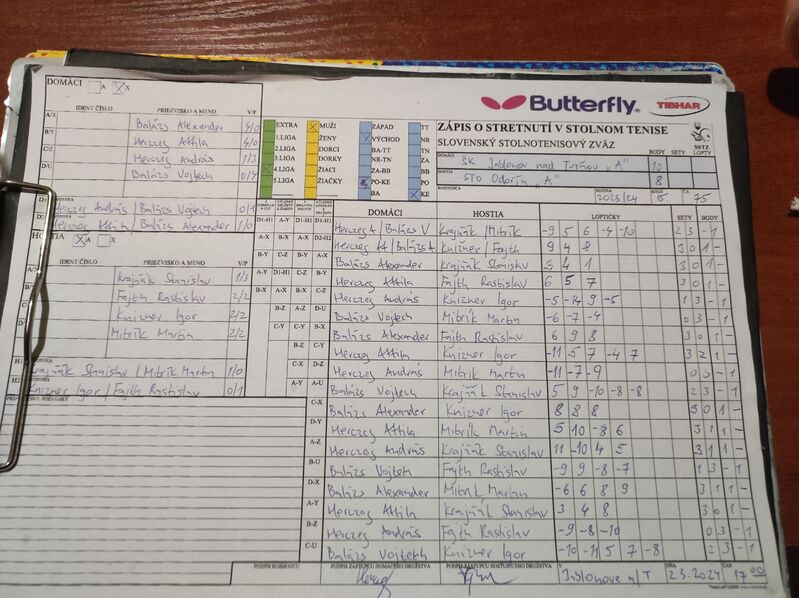 DOMÁCI A X
IDENT ČÍSLO PRIEZVISKO A MENO V/P
A/X Balázs Alexander 4/0
B/Y Herczeg Attila 4/0
C/Z Herczeg András 1/3
D/U Balázs Vojtech 0/4
Herczeg András / Balázs Vojtech 0/1
Herczeg Attila / Balázs Alexander 1/0
HOSTIA A X
IDENT ČÍSLO PRIEZVISKO A MENO V/P
Krajňák Stanislav 1/3
Fajth Rastislav 2/2
Knizner Igor 2/2
Mitrík Martin 2/2
Krajňák Stanislav / Mitrík Martin 1/0
Knizner Igor / Fajth Rastislav 0/1
EXTRA
1.LIGA
2.LIGA
3.LIGA
4.LIGA
5.LIGA
MUŽI
ŽENY
DORCI
DORKY
ŽIACI
ŽIAČKY
ZÁPAD
VÝCHOD
BA-TT
NR-TN
ZA-BB
PO-KE
BA
TT
NR
TN
ZA
BB
PO
KE
Butterfly TIBHAR
ZÁPIS O STRETNUTÍ V STOLNOM TENISE
SLOVENSKÝ STOLNOTENISOVÝ ZVÄZ
SSTZ
DOMÁCI BODY SETY LOPTY
ŠK Jablonov nad Turňou "A" 10
HOSTIA
STO Odorín "A" 8
ROZHODCA SEZÓNA KOLO
2023/24 15. 75
DOMÁCI HOSTIA LOPTIČKY SETY BODY
Herczeg A / Balázs V Krajňák / Mitrík -9 5 6 -4 -10 2 3 - 1
Herczeg At / Balázs A Knizner / Fajth 9 4 8 3 0 1 -
Balázs Alexander Krajňák Stanislav 3 4 1 3 0 1 -
Herczeg Attila Fajth Rastislav 6 5 7 3 0 1 -
Herczeg András Knizner Igor -5 -14 9 -5 1 3 - 1
Balázs Vojtech Mitrik Martin -6 -7 -4 0 3 - 1
Balázs Alexander Fajth Rastislav 6 9 8 3 0 1 -
Herczeg Attila Knizner Igor -11 5 7 -4 7 3 2 1 -
Herczeg András Mitrik Martin -11 -7 -9 0 3 - 1
Balázs Vojtech Krajňák Stanislav 5 9 -10 -8 -8 2 3 - 1
Balázs Alexander Knizner Igor 8 8 8 3 0 1 -
Herczeg Attila Mitrik Martin 5 10 -8 6 3 1 1 -
Herczeg András Krajňák Stanislav 11 -10 4 5 3 1 1 -
Balázs Vojtech Fajth Rastislav -9 9 -8 -7 1 3 - 1
Balázs Alexander Mitrik Martin -6 6 8 9 3 1 1 -
Herczeg Attila Krajňák Stanislav 3 4 8 3 0 1 -
Herczeg András Fajth Rastislav -9 -8 -10 0 3 - 1
Balázs Vojtech Knizner Igor -10 -11 5 7 -8 2 3 - 1
PODPIS ROZHODCU PODPIS ZÁSTUPCU DOMÁCEHO DRUŽSTVA PODPIS ZÁSTUPCU HOSŤUJÚCEHO DRUŽSTVA
V Jablonove n/T DŇA 2.3.2024 ČAS 17 00